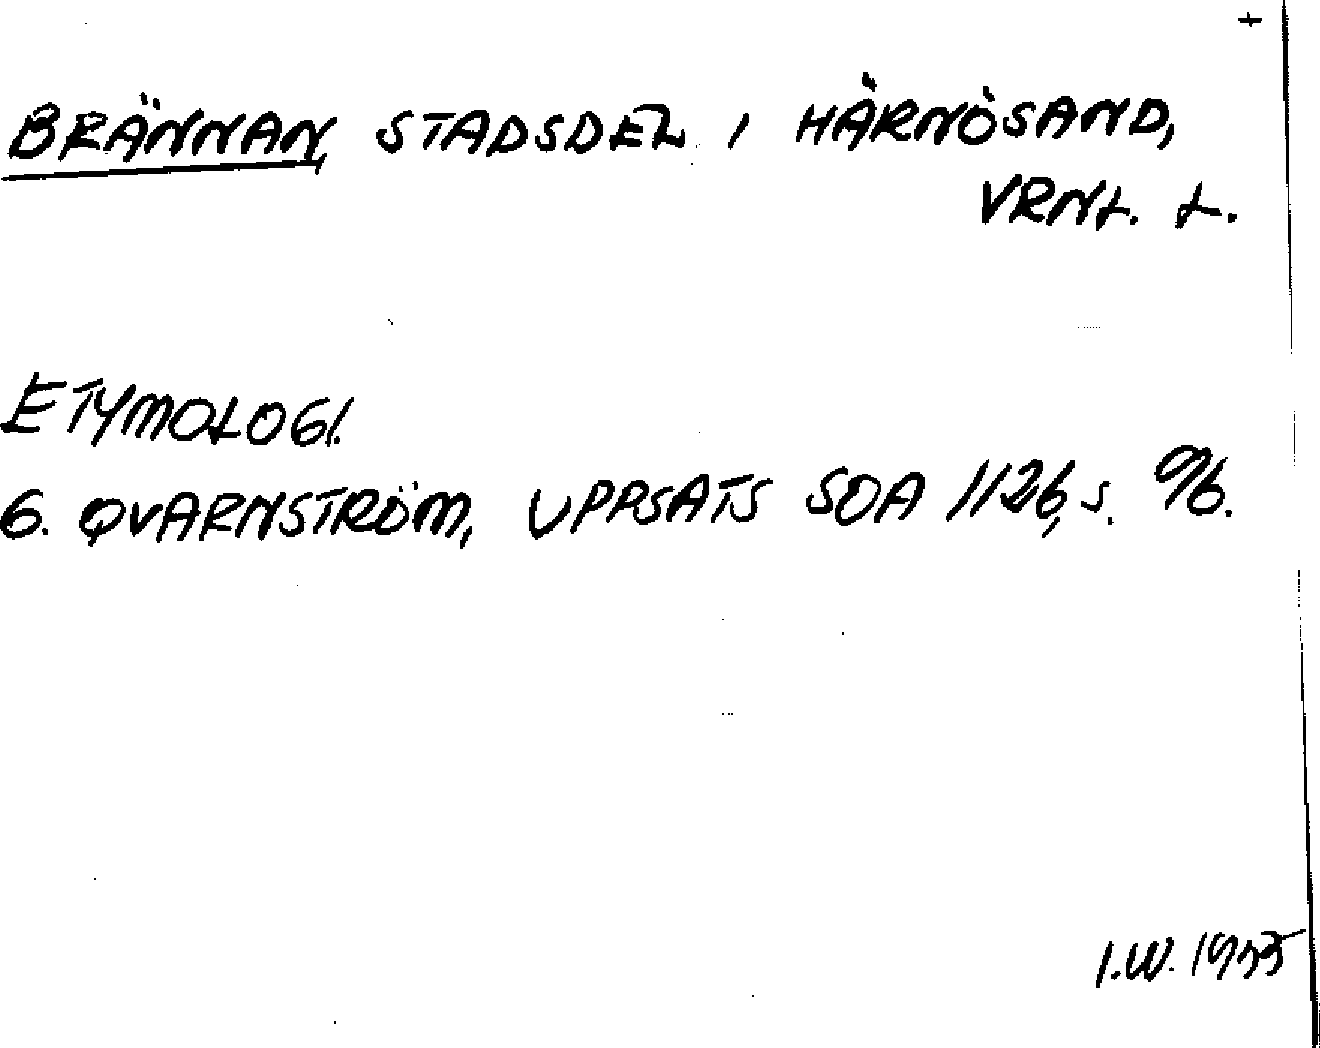 +
BRÄNNAN, STADSDEL I HÄRNÖSAND,
VRNL. L.
ETYMOLOGI.
G. QVARNSTRÖM, UPPSATS SOA 1126, S. 96.
I.W.